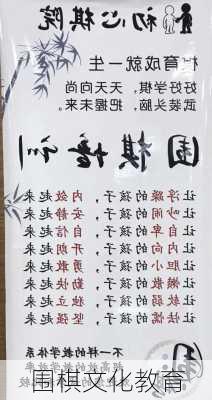 初心棋院
育成就一生
好好学棋，天天向尚
武装头脑，把握未来。
围棋培训
让浮躁的孩子，内敛起来
让吵闹的孩子，安静起来
让自卑的孩子，自信起来
让内向的孩子，开朗起来
让胆小的孩子，勇敢起来
让懒散的孩子，勤快起来
让软弱的孩子，独立起来
让怯懦的孩子，坚强起来
不一样的教学体系
围棋文化教育